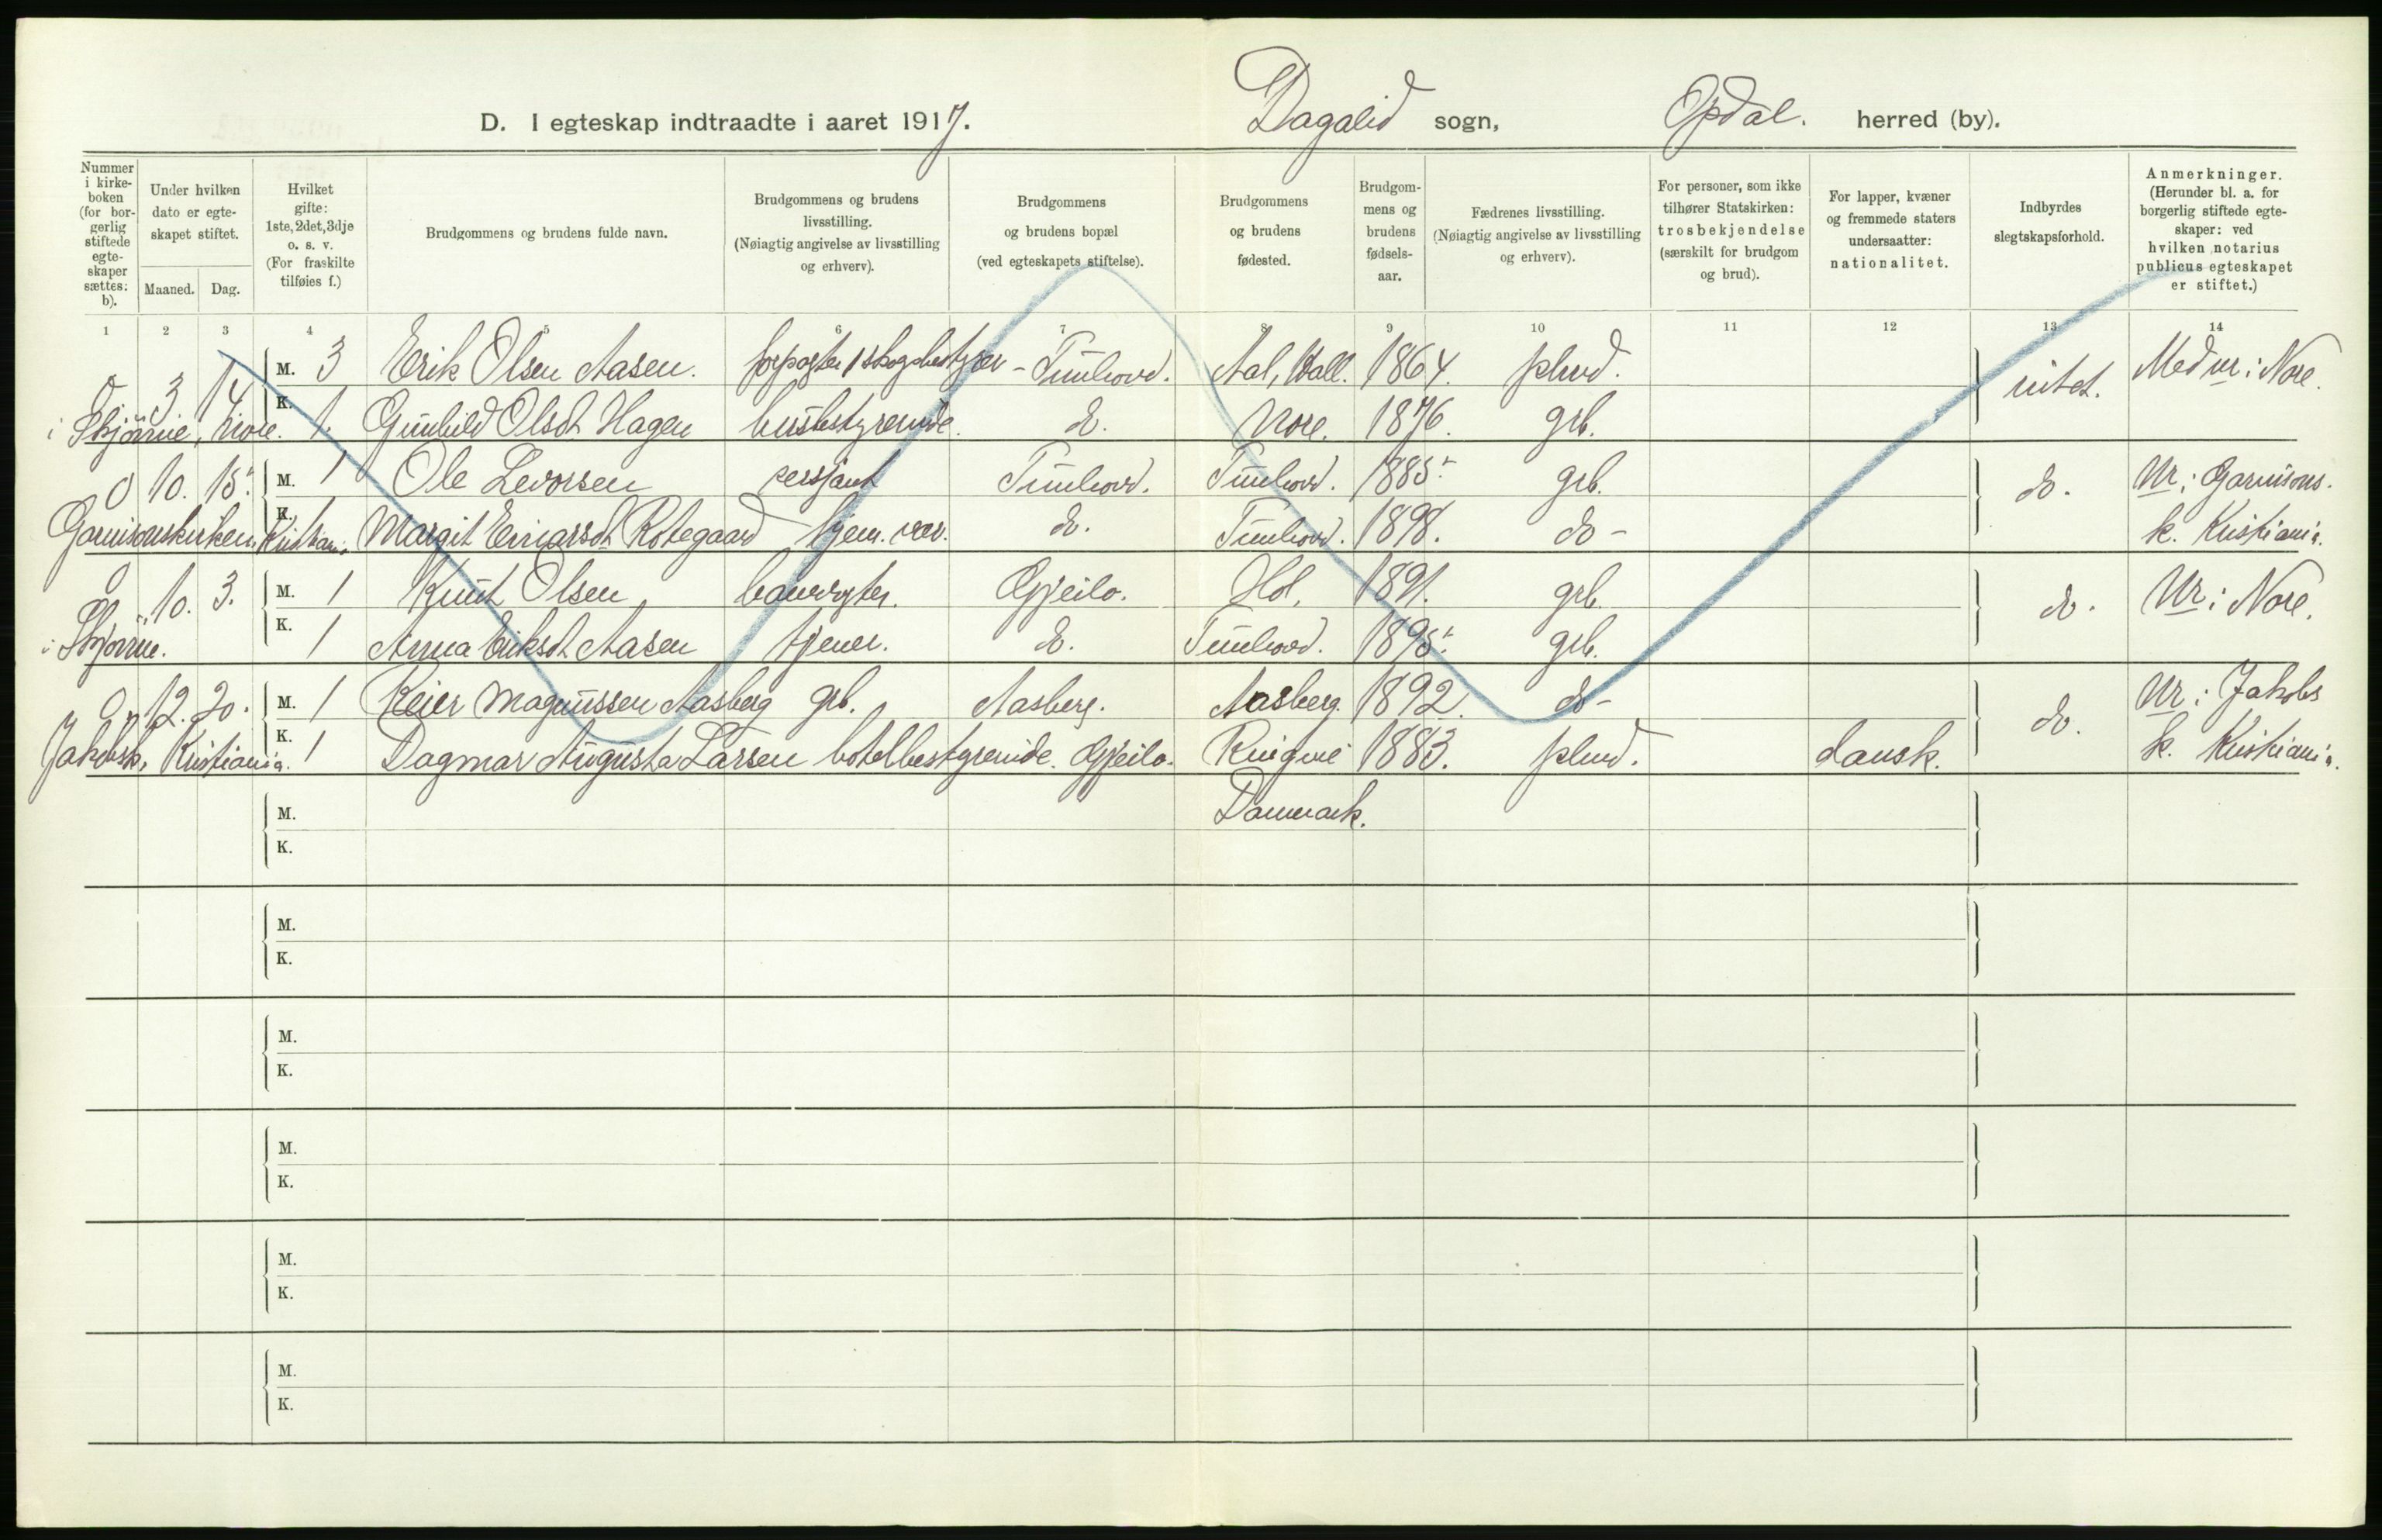 D. I egteskap indtraadte i aaret 1917. Dagalid sogn, Opdal. herred (by).
Nummer i kirke- boken (for bor- gerlig stiftede egte- skaper sættes: b).
Under hvilken dato er egte- skapet stiftet.
Maaned. Dag.
Hvilket gifte: 1ste, 2det, 3dje o. s. v. (For fraskilte tilføies f.)
Brudgommens og brudens fulde navn.
Brudgommens og brudens livsstilling. (Nøiagtig angivelse av livsstilling og erhverv).
Brudgommens og brudens bopæl (ved egteskapets stiftelse).
Brudgommens og brudens fødested.
Brudgom- mens og brudens fødsels- aar.
Fædrenes livsstilling. (Nøiagtig angivelse av livsstilling og erhverv).
For personer, som ikke tilhører Statskirken: trosbekjendelse (særskilt for brudgom og brud).
For lapper, kvæner og fremmede staters undersaatter: nationalitet.
Indbyrdes slegtskapsforhold.
Anmerkninger. (Herunder bl. a. for borgerlig stiftede egte- skaper: ved hvilken notarius publicus egteskapet er stiftet.)
1 2 3 4 5 6 7 8 9 10 11 12 13 14
0 3 14 M. 3 Erik Olsen Aasen. Tunhovd. Aal, Hall. 1864. plmd. intet. Med ur i Nore.
i Skjønne, Nore. K. 1. Gunhild Olsdt Hagen husbestyrerinde. do. Nore. 1876. grb.
0 10. 15. M. 1 Ole Levorsen sersjant Tunhovd. Tunhovd. 1885. grb. do. Ur i Garnisons-
Garnisonskirken, Kristiania K. 1 Margit Einarsdt Rotegaard hjem. vær. do. Tunhovd. 1898. do - k. Kristiania.
0 10. 3. M. 1 Knut Olsen banevogter. Gjeilo. Hol. 1891. grb. do. Ur i Nore.
i Skjønne. K. 1 Anna Eriksdt Aasen tjener. do. Tunhovd. 1895. grb.
0 12. 20. M. 1 Reier Magnussen Aasberg grb. Aasberg. Aasberg 1892. do - do. Ur i Jakobs
Jakobsk, Kristiania. K. 1 Dagmar Augusta Larsen hotelbestyrerinde. Gjeilo. 1883. plmd. dansk. k. Kristiania.
M. Danmark.
K.
M.
K.
M.
K.
M.
K.
M.
K.
M.
K.